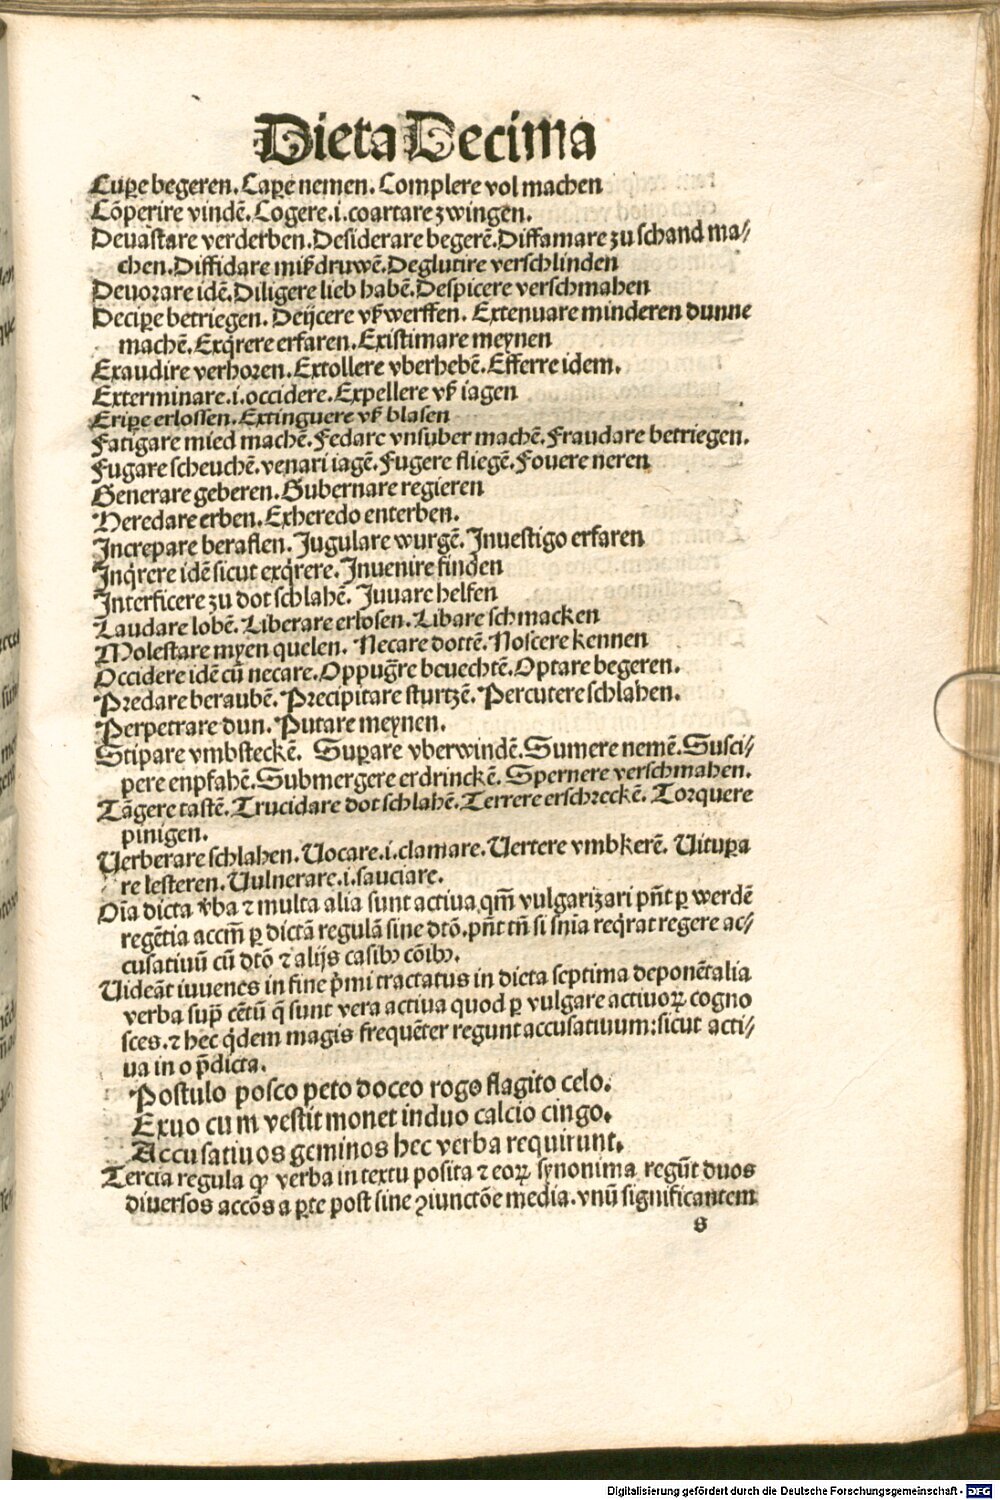 Dieta Decima
Cuꝑe begeren. Caꝑe nemen. Complere vol machen
Cõperire vindẽ. Cogere .i. coartare zwingen.
Deuastare verderben. Desiderare begerẽ. Diffamare zu schand ma⸗
chen. Diffidare miß druwẽ. Deglutire verschlinden
Deuorare idẽ. Diligere lieb habẽ. Despicere verschmahen
Deciꝑe betriegen. Deijcere vß werffen. Extenuare minderen dunne
machẽ. Exq̃rere erfaren. Existimare meynen
Exaudire verhoren. Extollere vberhebẽ. Efferre idem.
Exterminare .i. occidere. Expellere vß iagen
Eriꝑe erlossen. Extinguere vß blasen
Fatigare mied machẽ. Fedare vnsuber machẽ. Fraudare betriegen.
Fugare scheuchẽ. venari iagẽ. Fugere fliegẽ. Fouere neren
Generare geberen. Gubernare regieren
Heredare erben. Exheredo enterben.
Increpare beraflen. Jugulare wurgẽ. Inuestigo erfaren
Inq̃rere idẽ sicut exq̃rere. Inuenire finden
Interficere zu dot schlahẽ. Juuare helfen
Laudare lobẽ. Liberare erlosen. Libare schmacken
Molestare myen quelen. Necare dottẽ. Noscere kennen
Occidere idẽ cũ necare. Oppug̃re bcuechtẽ. Optare begeren.
Predare beraubẽ. Precipitare sturtzẽ. Percutere schlahen.
Perpetrare dun. Putare meynen.
Stipare vmbsteckẽ. Suꝑare vberwindẽ. Sumere nemẽ. Susci⸗
pere enpfahẽ. Submergere erdrinckẽ. Spernere verschmahen.
Tãgere tastẽ. Trucidare dot schlahẽ. Terrere erschreckẽ. Torquere
pinigen.
Uerberare schlahen. Uocare .i. clamare. Uertere vmbkerẽ. Uituꝑa
re lesteren. Uulnerare .i. sauciare.
Oĩa dicta v̄ba ⁊ multa alia sunt actiua qm̃ vulgarizari pñt ꝑ werdẽ
regẽtia accm̃ ꝑ dictã regulã sine dtõ. pñt tñ si snĩa req̃rat regere ac⸗
cusatiuũ cũ dtõ ⁊ alijs casibꝫ cõibꝫ.
Uideãt iuuenes in fine p̃mi tractatus in dieta septima deponẽtalia
verba sup̃ cẽtũ q̃ sunt vera actiua quod ꝑ vulgare actiuoꝝ cogno
sces. ⁊ hec q̃dem magis frequẽter regunt accusatiuum: sicut acti⸗
ua in o p̃dicta.
Postulo posco peto doceo rogo flagito celo.
Exuo cum vestit monet induo calcio cingo.
Accusatiuos geminos hec verba requirunt.
Tercia regula ꝙ verba in textu posita ⁊ eoꝝ synonima regũt duos
diuersos accõs a ꝑte post sine ꝯiunctõe media. vnũ significantem
s
Digitalisierung gefördert durch die Deutsche Forschungsgemeinschaft - DFG